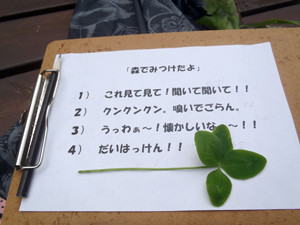 「森でみつけたよ」
1） これ見て見て！聞いて聞いて！！
2） クンクンクン。嗅いでごらん。
3） うっわぁ～！懐かしいな ～！！
4） だいはっけん！！